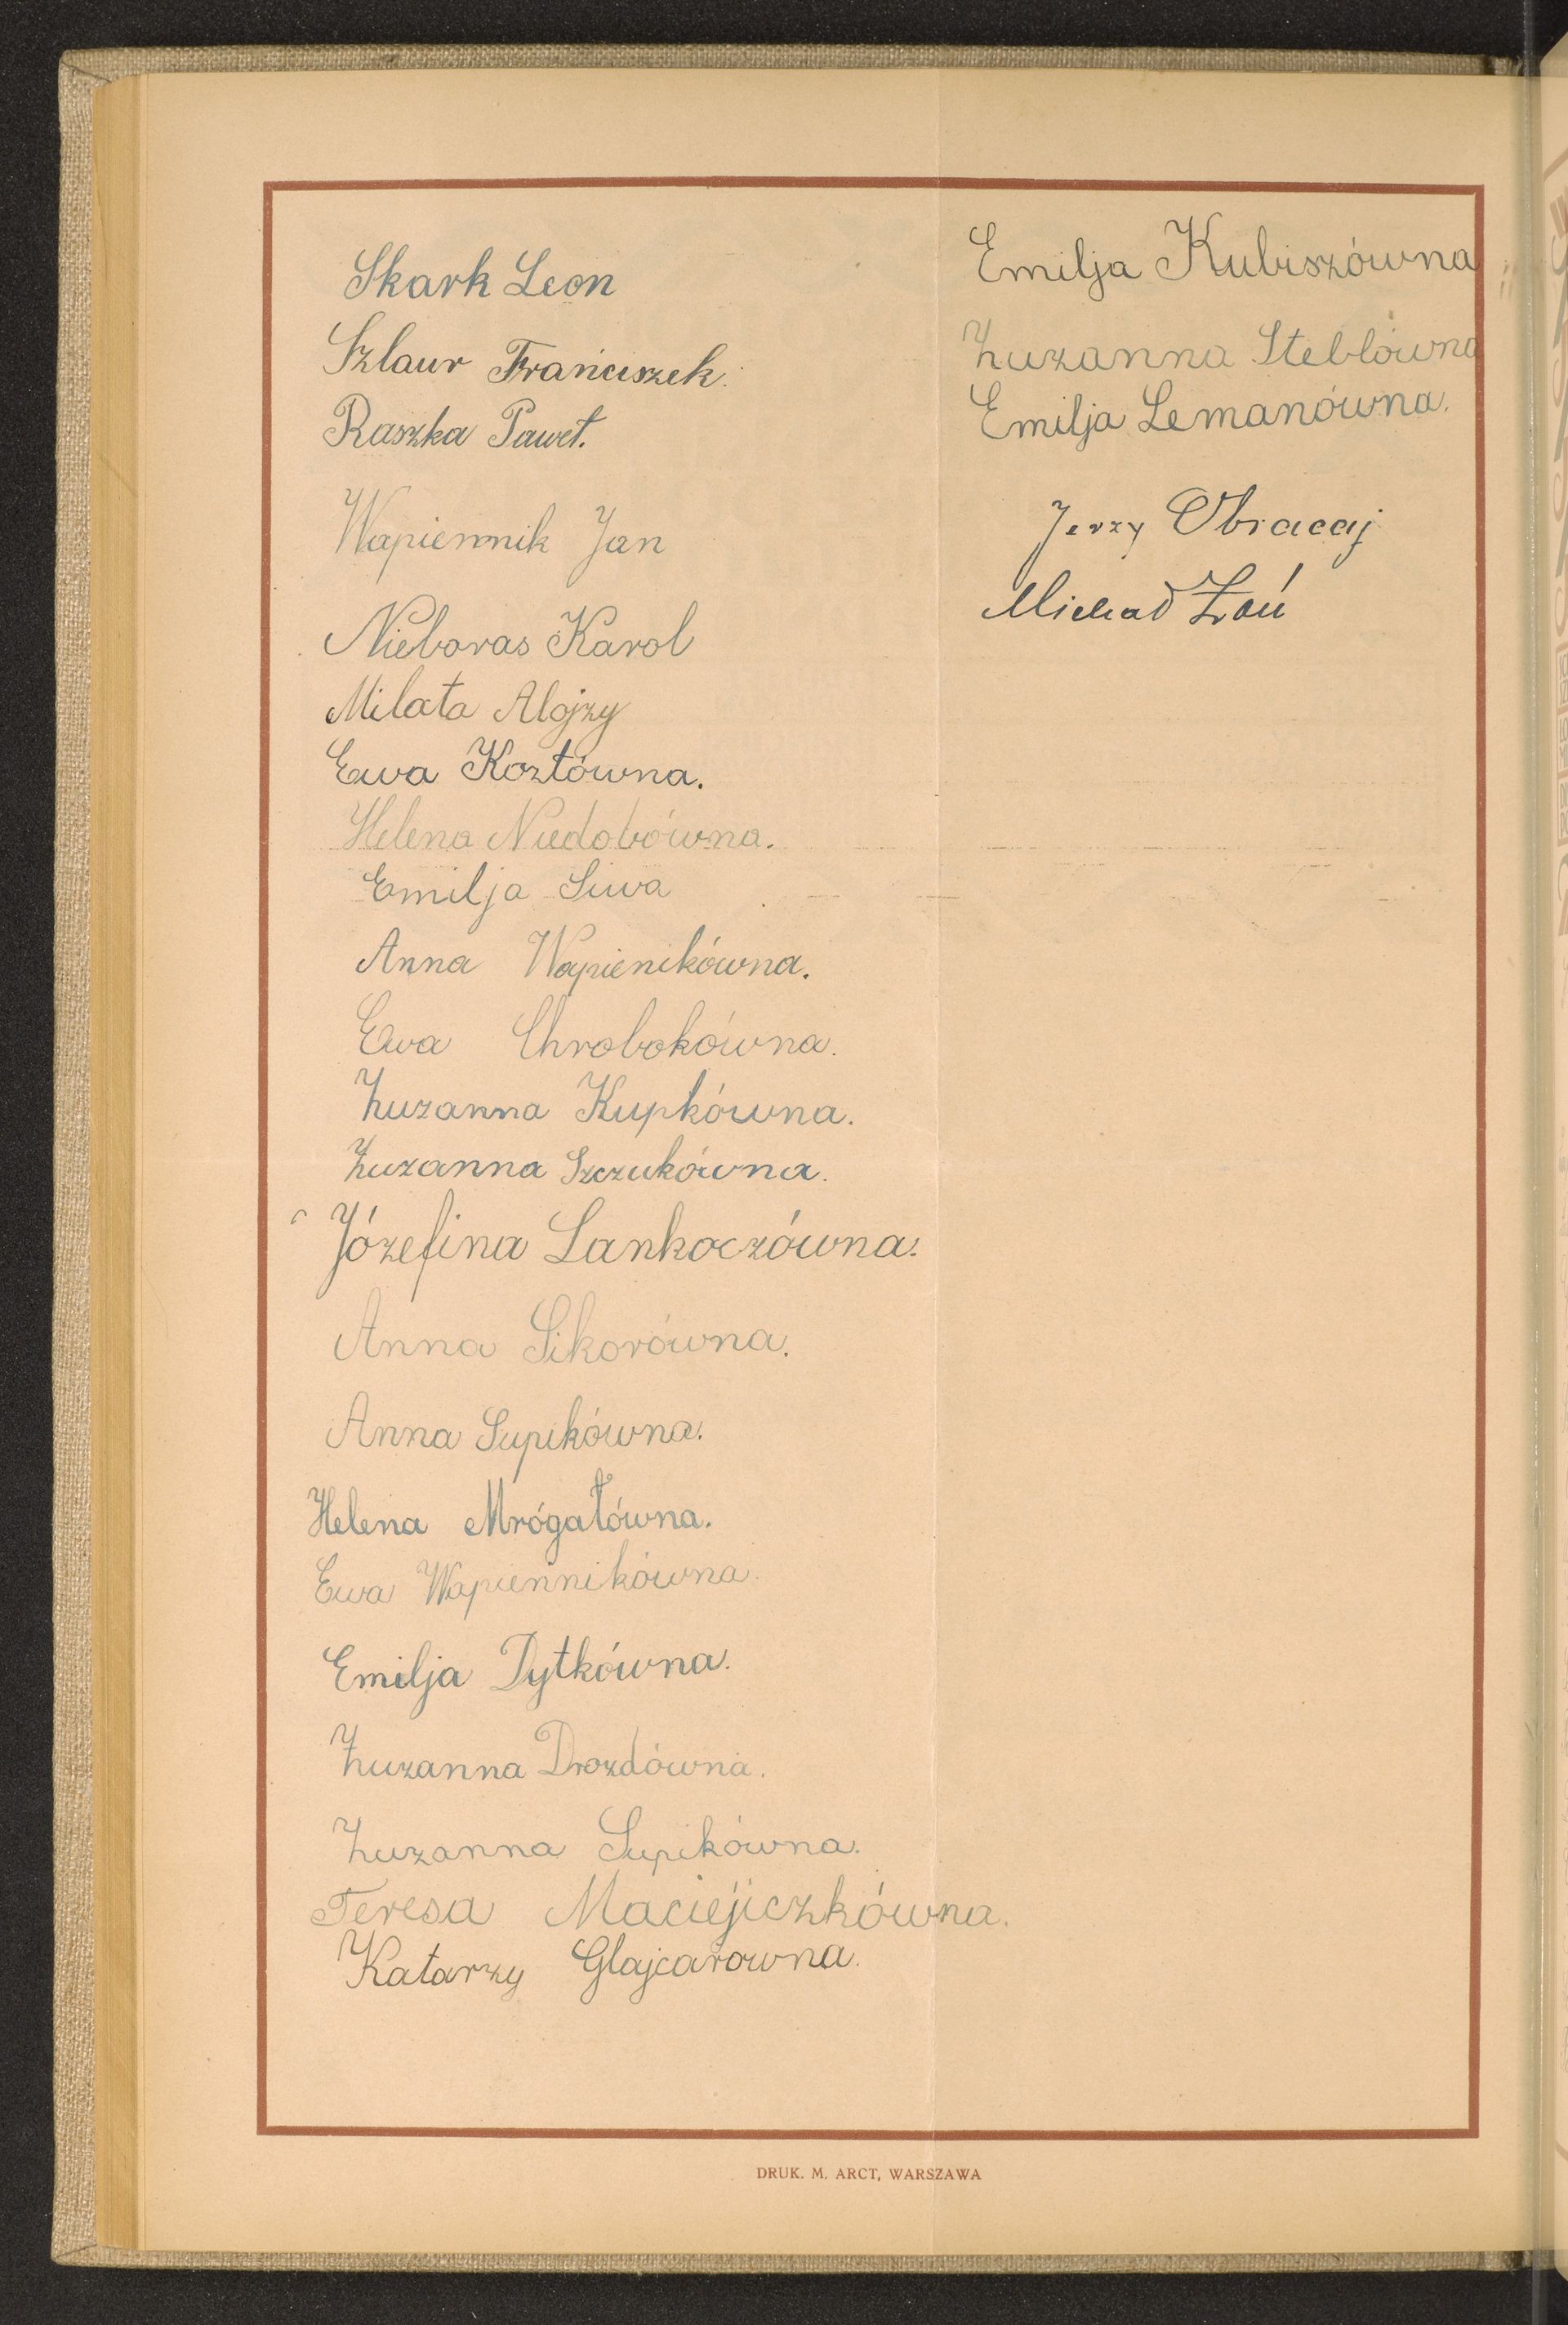 Skark Leon
Szlaur Franciszek.
Raszka Paweł.
Wapiennik Jan
Nieboras Karol
Milata Alojzy
Ewa Kozłówna.
Helena Niedobówna.
Emilja Siwa
Anna Wapienikówna.
Ewa Chrobokówna.
Zuzanna Kupkówna.
Zuzanna Szczukówna.
Józefina Lankoczówna.
Anna Sikorówna.
Anna Supikówna.
Helena Mrógałówna.
Ewa Wapiennikówna.
Emilja Dytkówna.
Zuzanna Drozdówna.
Zuzanna Supikówna.
Teresa Maciejiczkówna.
Katarzy Glajcarowna.
Emilja Kubiszówna
Zuzanna Steblówna
Emilja Lemanówna.
Jerzy Obracaj
Michał
DRUK. M. ARCT, WARSZAWA